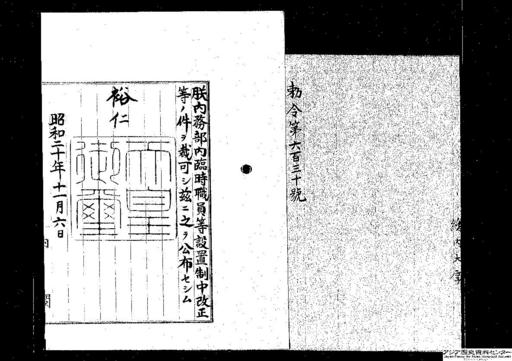 勅令第六百三十號
朕内務部内臨時職員等設置制中改正
等ノ件ヲ裁可シ茲ニ之ヲ公布セシム
裕仁
天皇御璽
昭和二十年十一月六日
内
閣
アジア歴史資料センター